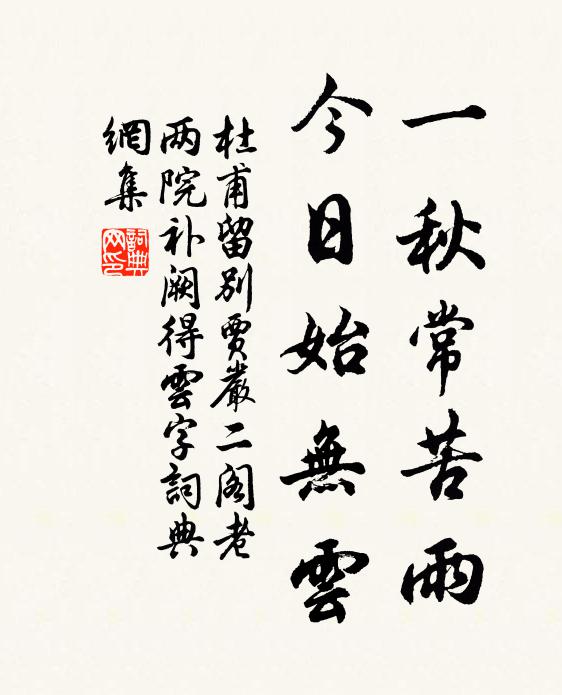 一秋常苦雨
今日始無雲
杜甫留别賈嚴二閣老
两院补阙得雲字詞典
網集
詞典
网印